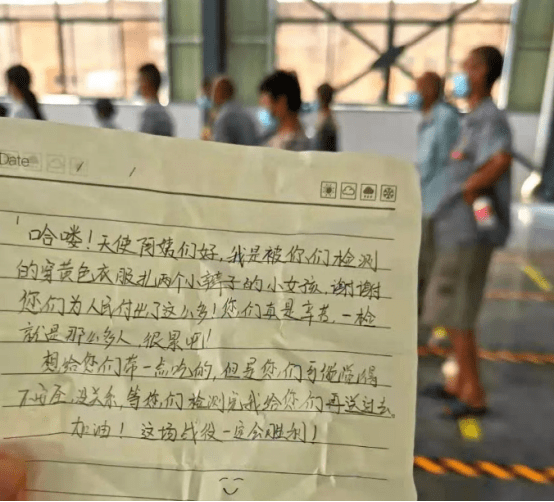 Date
哈喽!天使阿姨们好,我是被你们检测
的穿黄色衣服扎两个小辫子的小女孩,谢谢
您们为人民付出了这么多!您们真是辛苦,一检
就是那么多人,很累啊!
想给您们带一点吃的,但是您们可能觉得
不安全,没关系,等您们检测完我给您们再送过去。
加油!这场战役一定会胜利!